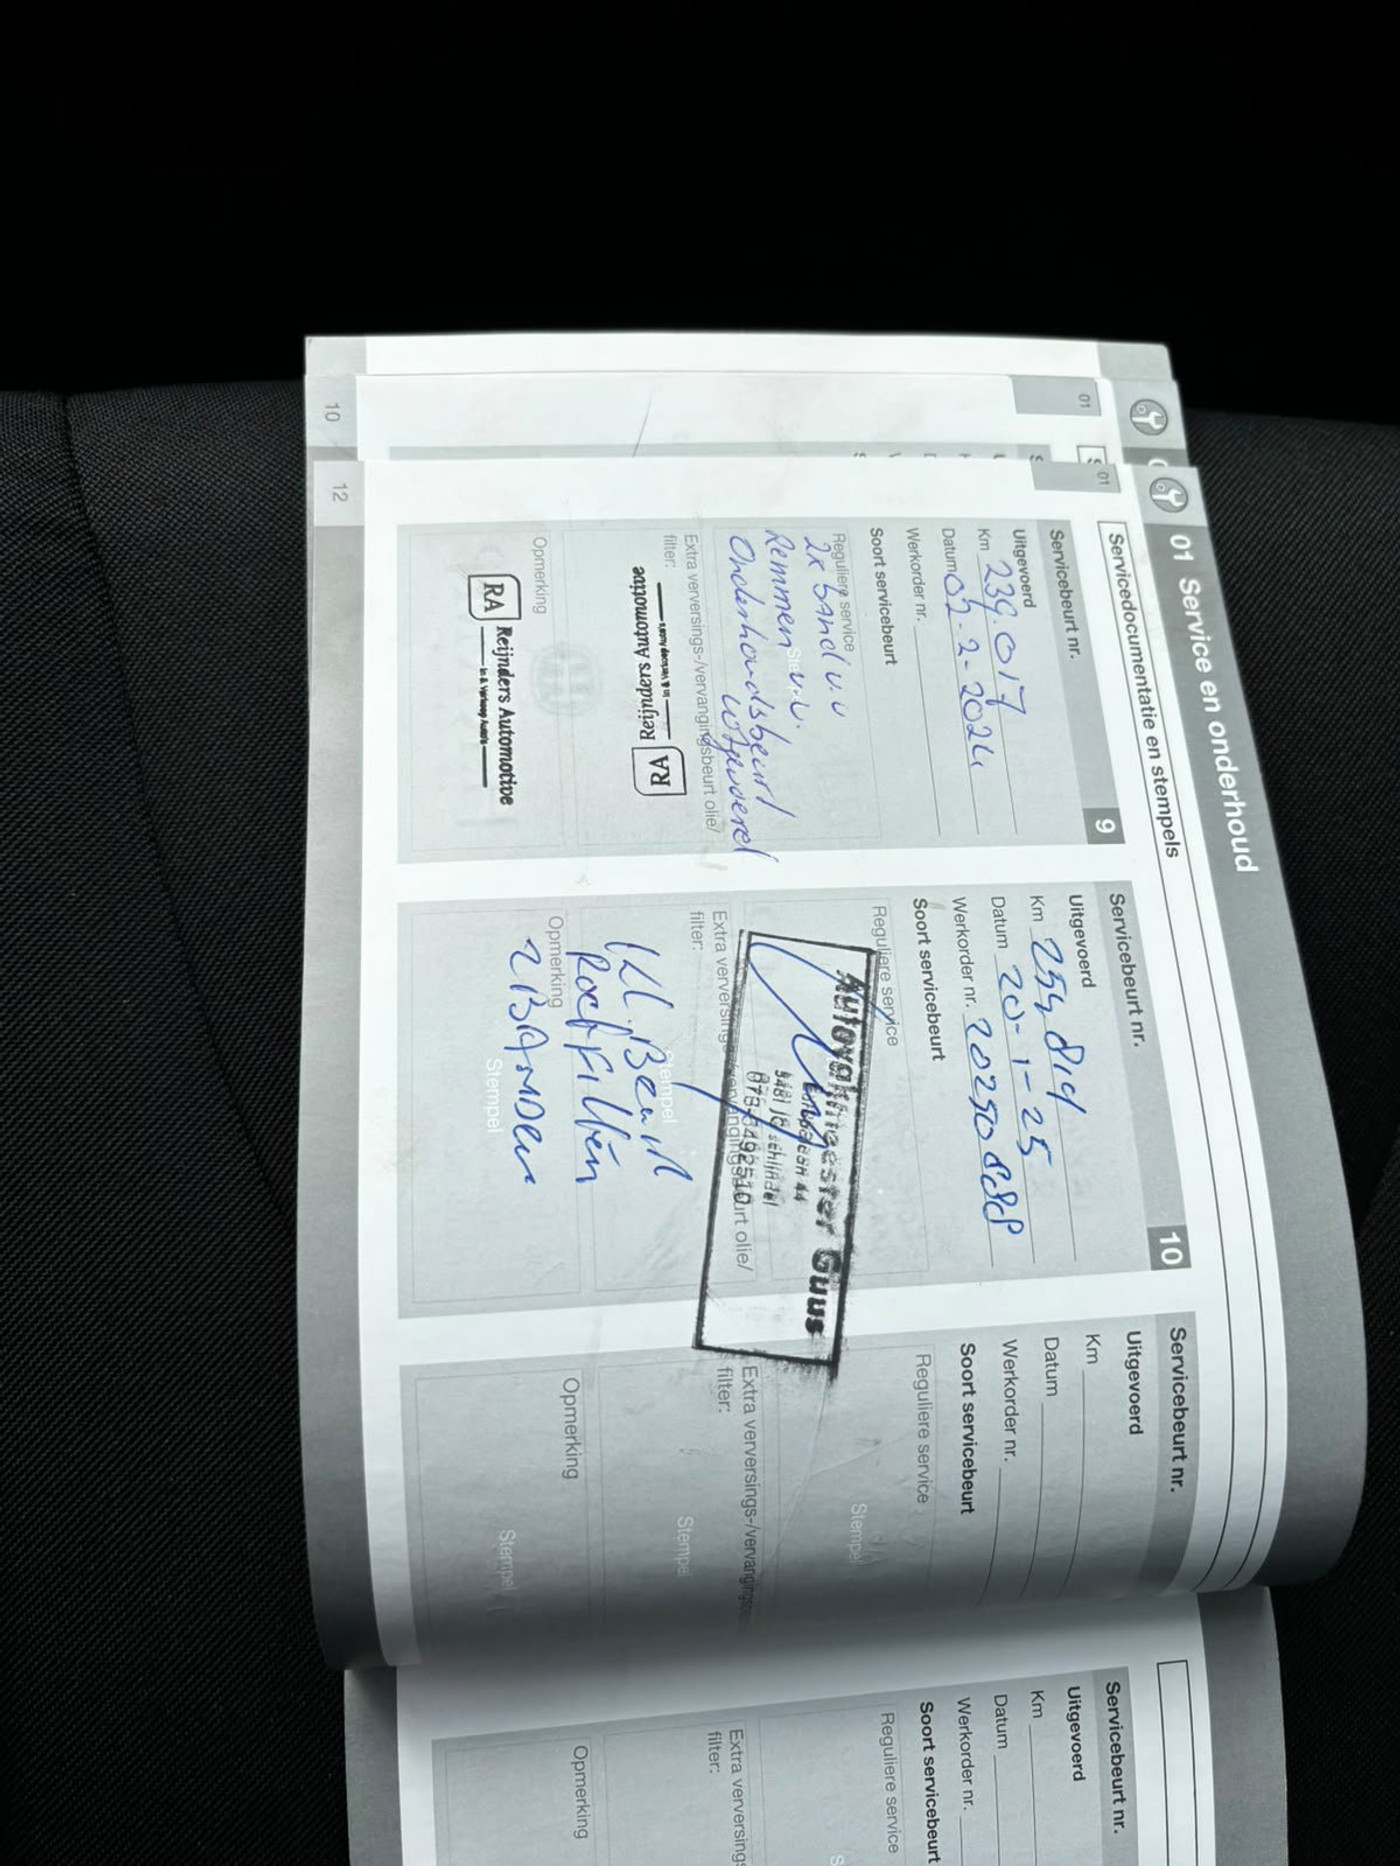 01 Service en onderhoud
Servicedocumentatie en stempels
Servicebeurt nr. 9
Uitgevoerd
Km 239.017
Datum 02-2-2024
Werkorder nr.
Soort servicebeurt
Reguliere service
2x Band v.v
Remmen v.v.
Onderhoudsbeurt
uitgevoerd
Extra verversings-/vervangingsbeurt olie/
filter:
RA Reijnders Automotive
In & Verkoop Auto's
Opmerking
RA Reijnders Automotive
In & Verkoop Auto's
Servicebeurt nr. 10
Uitgevoerd
Km 254814
Datum 20-1-25
Werkorder nr. 20250888
Soort servicebeurt
Reguliere service
Autovakmeester Guus
44
5481 JG schijndel
073-5492510
Extra verversings-/vervangingsbeurt olie/
filter:
Kl. Beurt
Stempel
RoetFilter
Opmerking
2 BANDEN
Stempel
Servicebeurt nr.
Uitgevoerd
Km
Datum
Werkorder nr.
Soort servicebeurt
Reguliere service
Stempel
Extra verversings-/vervangings
filter:
Stempel
Opmerking
Stempel
Servicebeurt nr.
Uitgevoerd
Km
Datum
Werkorder nr.
Soort servicebeurt
Reguliere service
Extra verversings
filter:
Opmerking
01
01
10
12